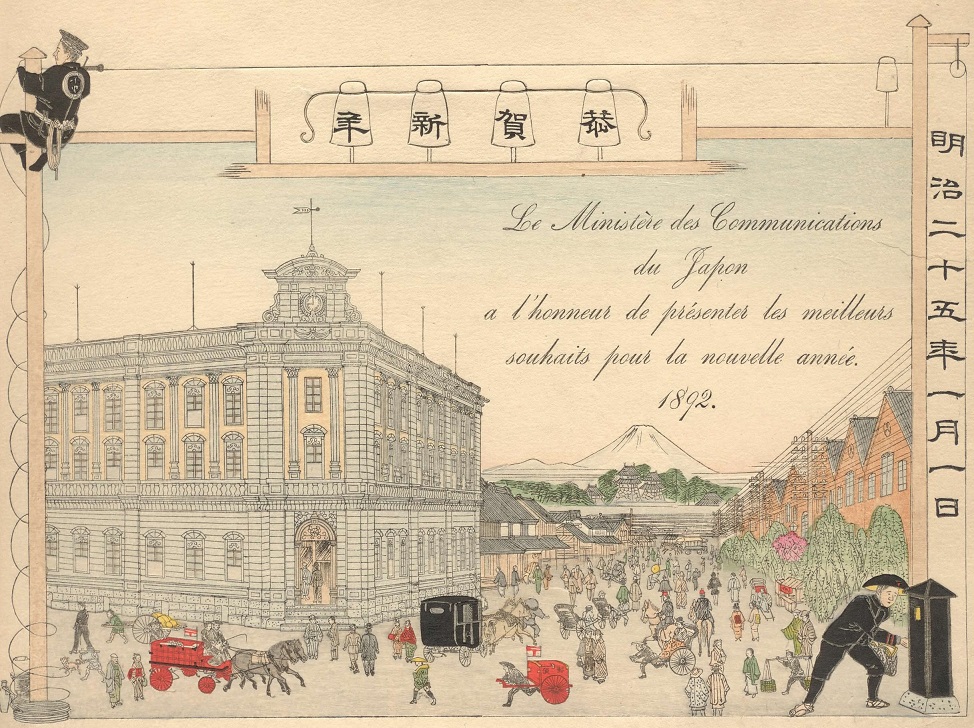 恭賀新年
Le Ministère des Communications
du Japon
a l'honneur de présenter les meilleurs
souhaits pour la nouvelle année.
1892.
明治二十五年一月一日